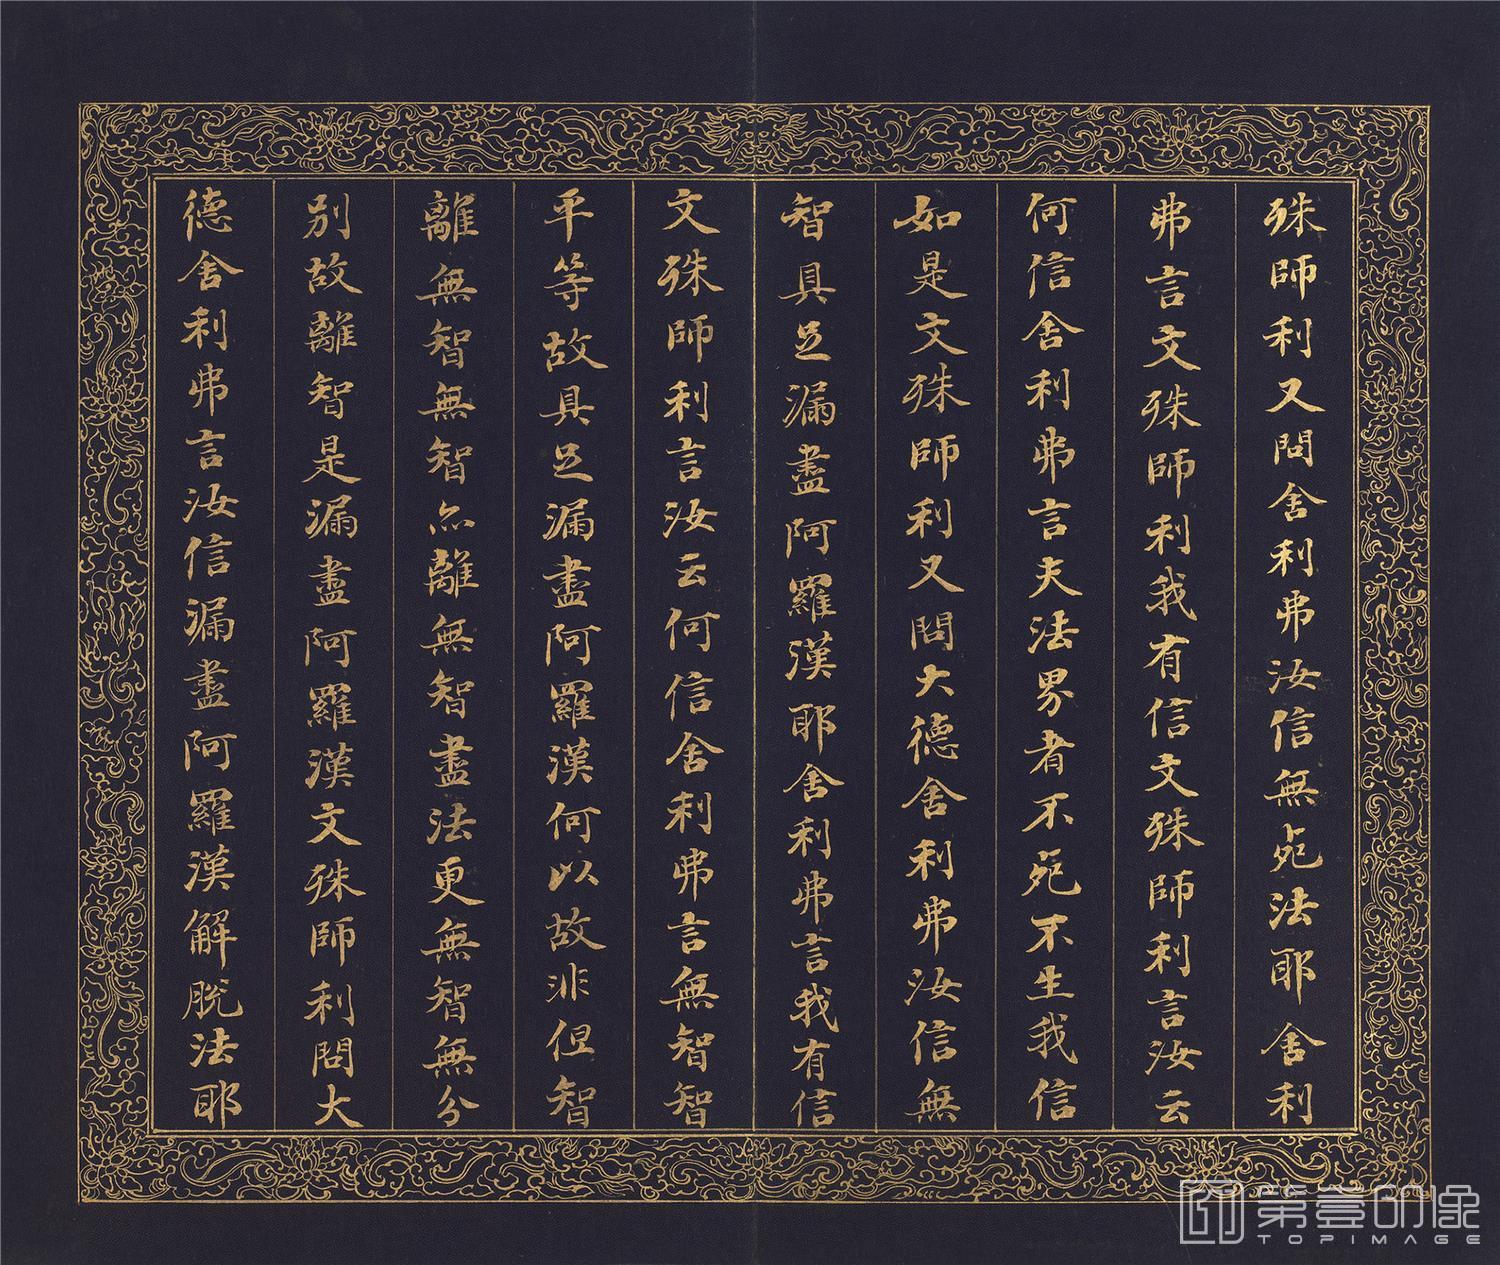 殊師利又問舍利弗汝信無死法耶舍利
弗言文殊師利我有信文殊師利言汝云
何信舍利弗言夫法界者不死不生我信
如是文殊師利又問大德舍利弗汝信無
智具足漏盡阿羅漢耶舍利弗言我有信
文殊師利言汝云何信舍利弗言無智智
平等故具足漏盡阿羅漢何以故非但智
離無智無智亦離無智盡法更無智無分
別故離智是漏盡阿羅漢文殊師利問大
德舍利弗言汝信漏盡阿羅漢解脫法耶
第壹印像
TOPIMAGE